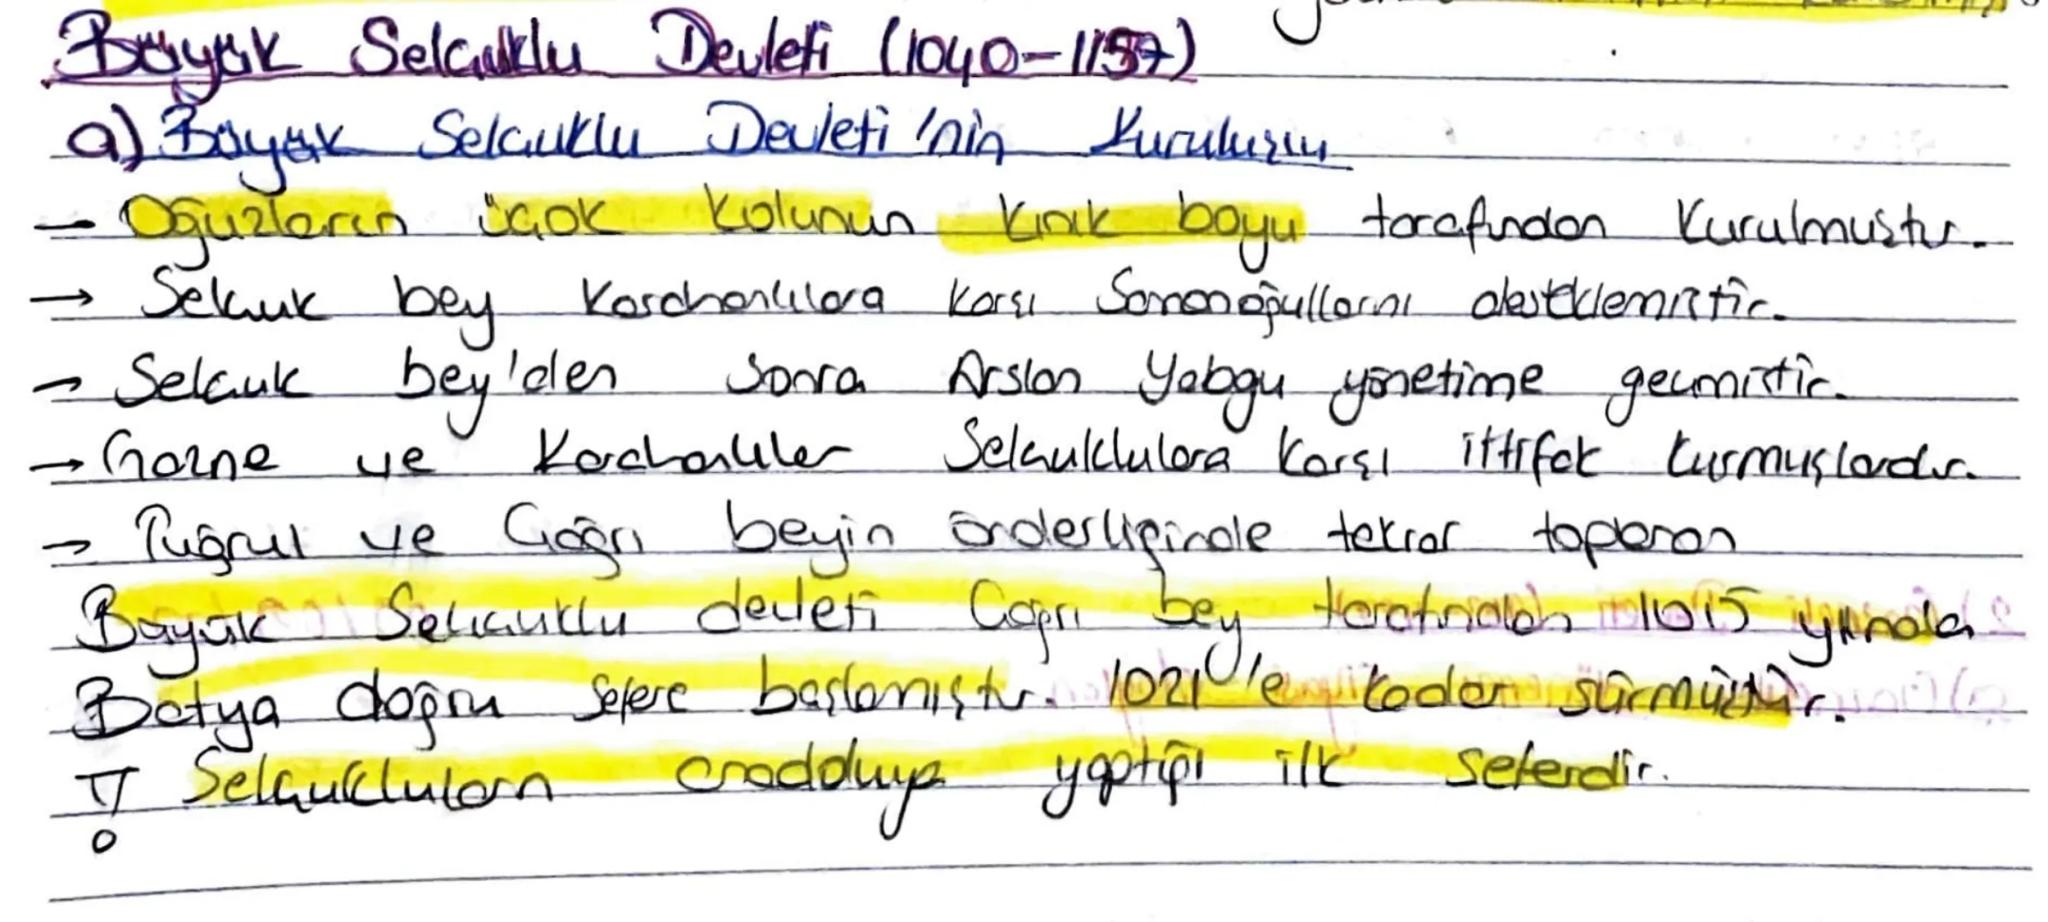 Büyük Selçuklu Devleti (1040-1157)
a) Büyük Selçuklu Devleti'nin Kuruluşu
- Oğuzların üçok kolunun kınık boyu tarafından kurulmuştur.
→ Selçuk bey Karahanlılara karşı Samanoğullarını desteklemiştir.
→ Selçuk bey'den sonra Arslan Yabgu yönetime geçmiştir.
→ Gazne ve Karahanlılar Selçuklulara karşı ittifak kurmuşlardır.
→ Tuğrul ve Çağrı beyin önderliğinde tekrar toplanan
Büyük Selçuklu devleti Çağrı bey tarafından 1015 yılında
Batıya doğru sefere başlamıştır. 1021'e kadar sürmüştür.
! Selçukluların anadoluya yaptığı ilk seferdir.